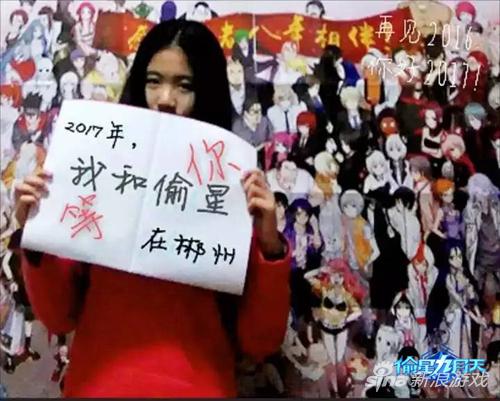 再见2016
你好2017!
2017年,
你
我和偷星
在郴州
偷星九月天
sina新浪游戏